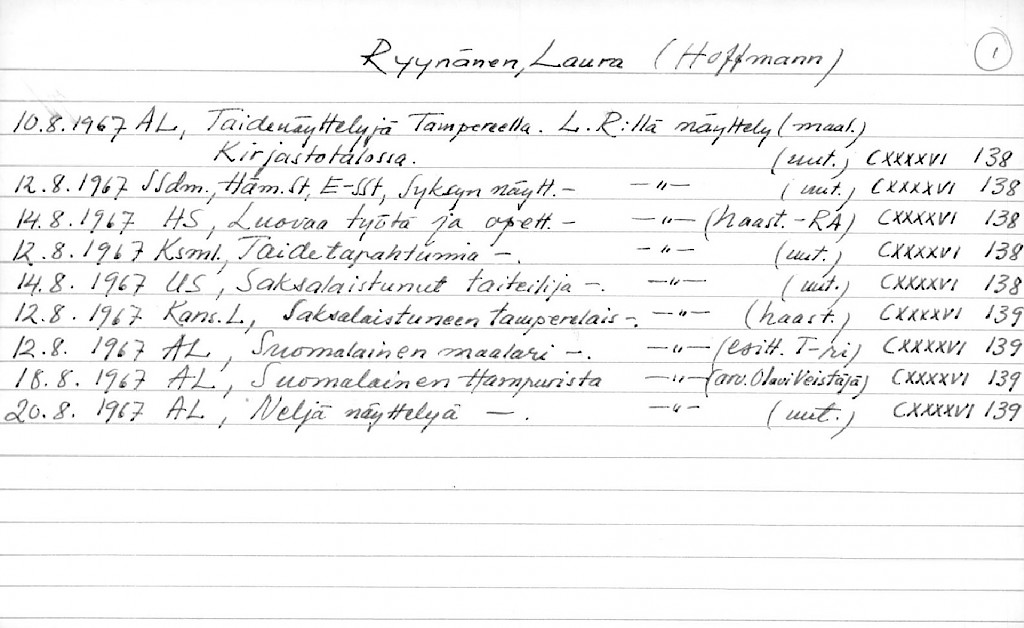 Ryynänen, Laura (Hoffmann) 1
10.8.1967 AL, Taidenäyttelyjä Tampereella. L.R:llä näyttely (maal.)
Kirjastotalossa. (uut.) CXXXXVI 138
12.8.1967 SSdm., Häm.St, E-SSt, Syksyn näytt.- -"- (uut.) CXXXXVI 138
14.8.1967 HS, Luovaa työtä ja opett.- -"- (haast.-RA) CXXXXVI 138
12.8.1967 Ksml., Taidetapahtumia -. -"- (uut.) CXXXXVI 138
14.8.1967 US, Saksalaistunut taiteilija -. -"- (uut.) CXXXXVI 138
12.8.1967 Kans.L, Saksalaistuneen tamperelais-. -"- (haast.) CXXXXVI 139
12.8.1967 AL, Suomalainen maalari -. -"- (esitt. T-ri) CXXXXVI 139
18.8.1967 AL, Suomalainen Hampurista -"- (arv. Olavi Veistäjä) CXXXXVI 139
20.8.1967 AL, Neljä näyttelyä -. -"- (uut.) CXXXXVI 139